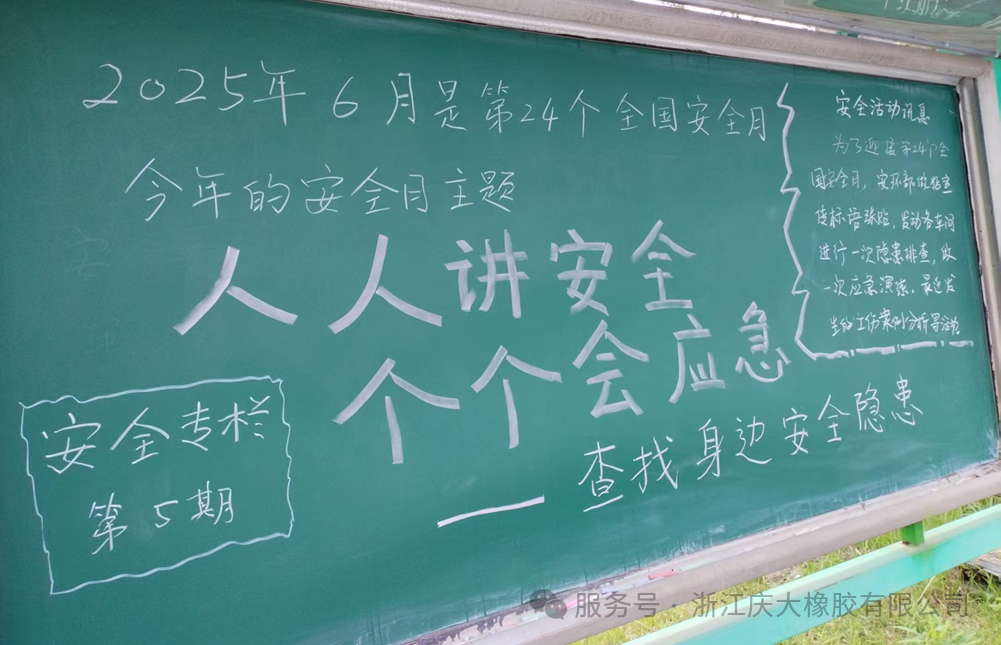 2025年6月是第24个全国安全月
今年的安全月主题
人人讲安全
个个会应急
——查找身边安全隐患
安全专栏
第5期
安全活动讯息
为了迎接第24个全
国安全月，安环部做检查
传标语张贴，发动各车间
进行一次隐患排查，做
一次应急演练、最近发
生的工伤案例分析等活动
服务号·浙江庆大橡胶有限公司